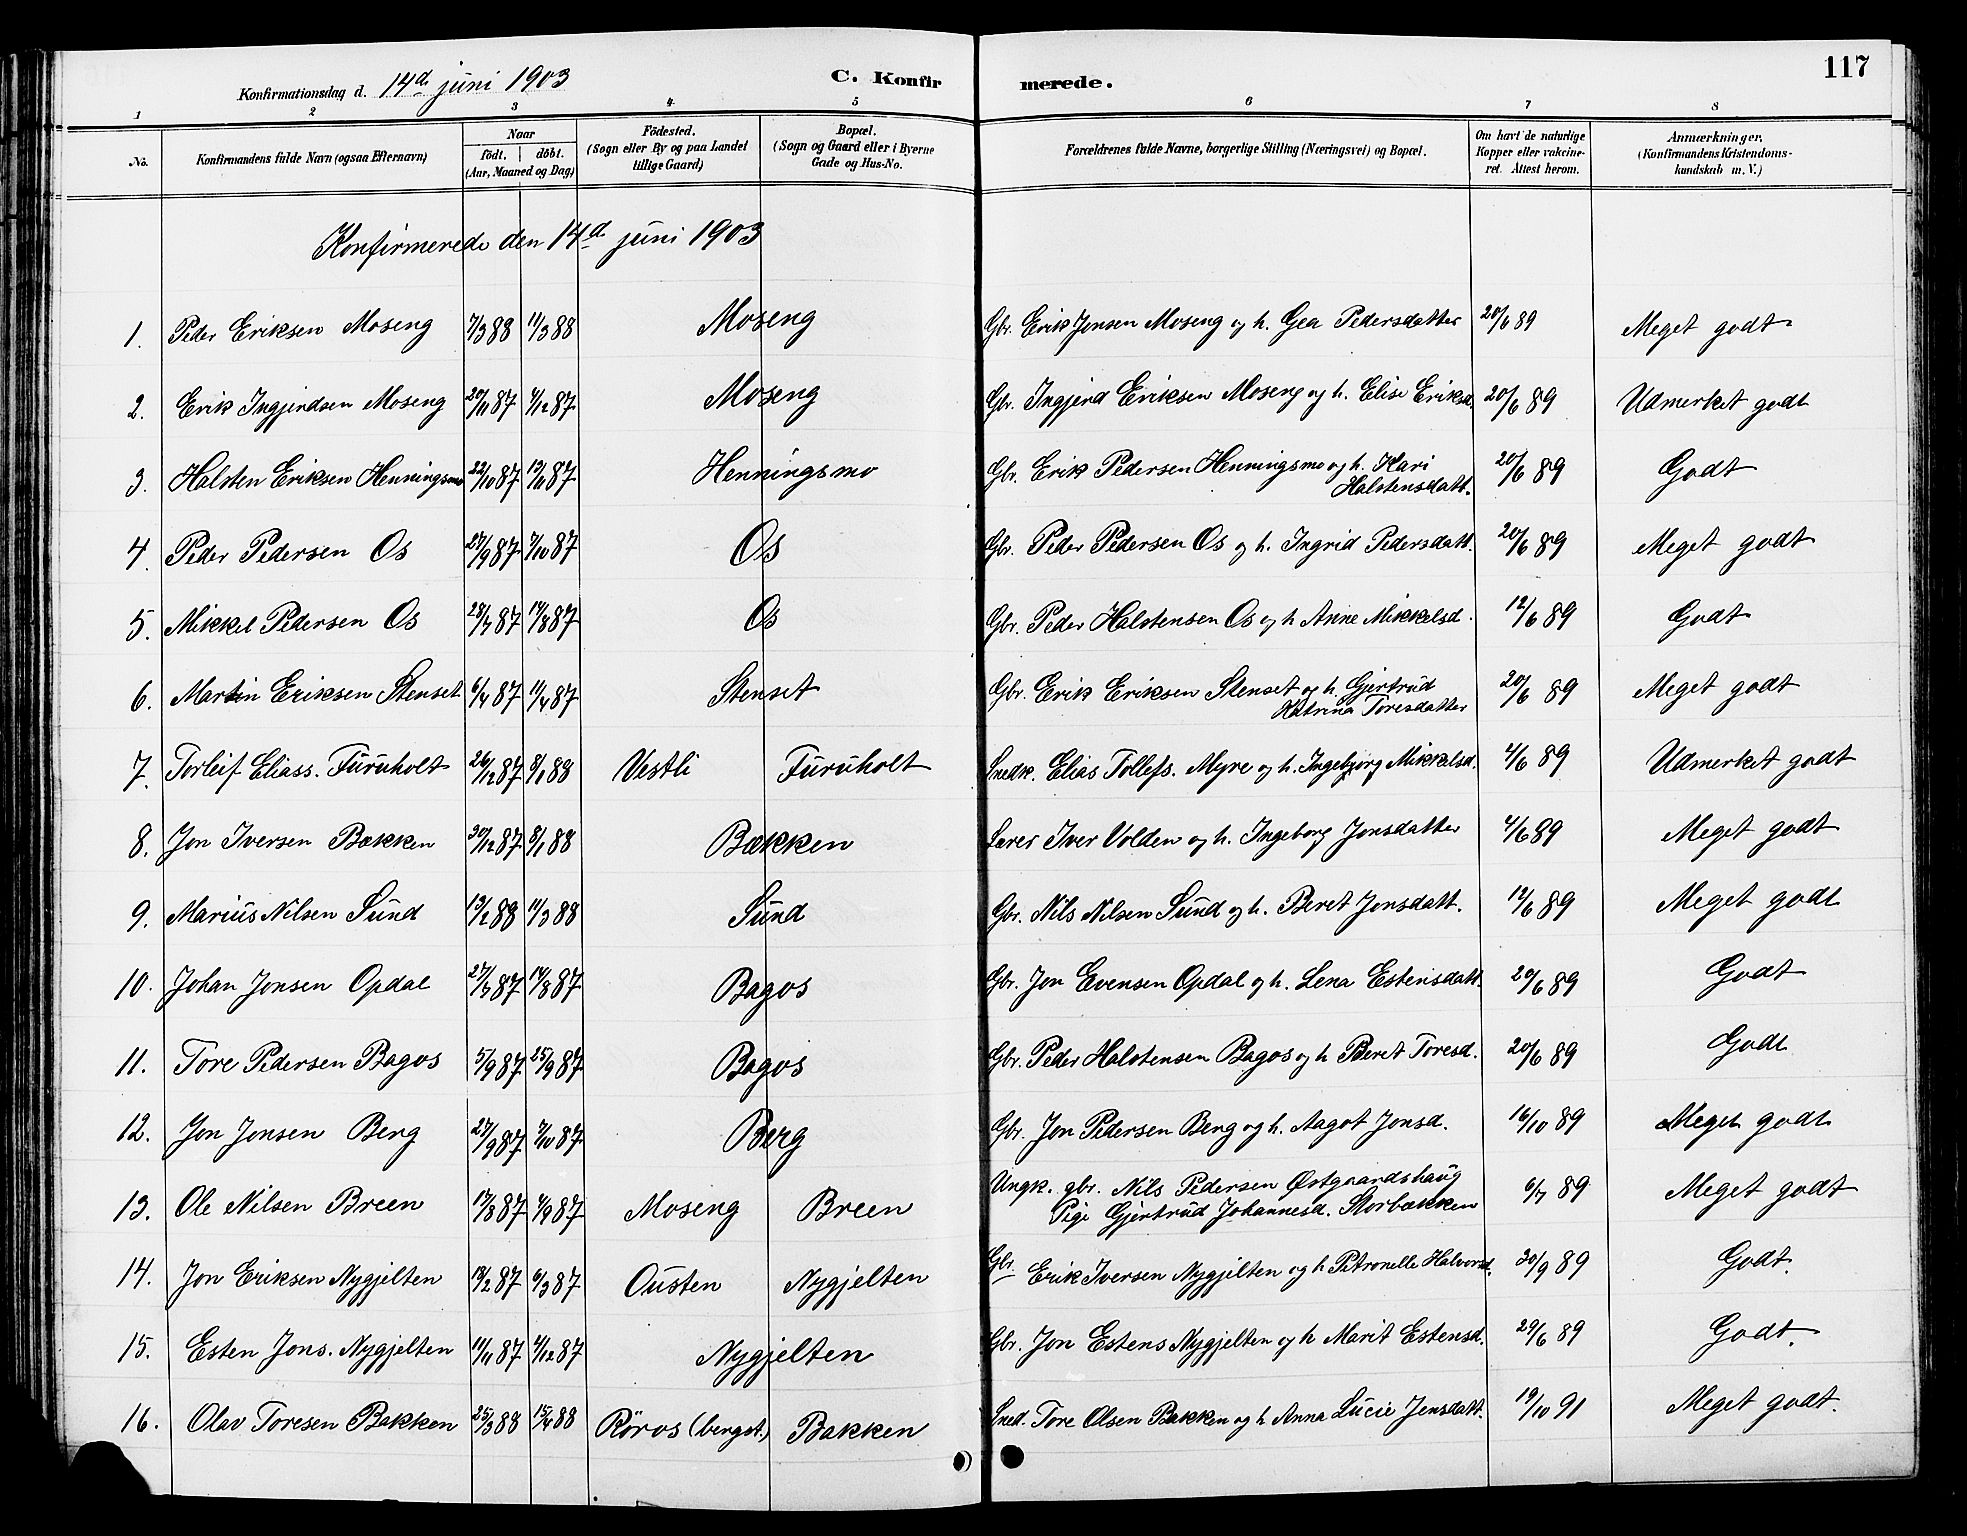 117
Konfirmationsdag d. 14d juni 1903 C. Konfirmerede.
1 2 3 4 5 6 7 8
No. Konfirmandens fulde Navn (ogsaa Efternavn) Naar født. døbt. (Aar, Maaned og Dag) Fødested. (Sogn eller By og paa Landet tillige Gaard) Bopæl. (Sogn og Gaard eller i Byerne Gade og Hus-No. Forældrenes fulde Navne, borgerlige Stilling (Næringsvei) og Bopæl. Om havt de naturlige Kopper eller vakcineret. Attest herom. Anmærkninger, (Konfirmandens Kristendomskundskab m. V.)
Konfirmerede den 14d juni 1903
1. Peder Eriksen Moseng 7/3 88 11/3 88 Moseng Gbr. Erik Jonsen Moseng og h. Gea Pedersdatter 20/6 89 Meget godt
2. Erik Ingjerdsen Moseng 20/11 87 4/12 87 Moseng Gbr. Ingjerd Eriksen Moseng og h. Elise Eriksd. 20/6 89 Udmerket godt
3. Halsten Eriksen Henningsmo 22/10 87 13/11 87 Henningsmo Gbr. Erik Pedersen Henningsmo og h. Kari Halstensdatt. 20/6 89 Godt
4. Peder Pedersen Os 27/9 87 7/10 87 Os Gbr. Peder Pedersen Os og h. Ingrid Pedersdatt. 20/6 89 Meget godt
5. Mikkel Pedersen Os 28/7 87 14/8 87 Os Gbr. Peder Halstensen Os og h Anne Mikkelsd. 12/6 89 Godt
6. Martin Eriksen Stenset 6/4 87 11/4 87 Stenset Gbr. Erik Eriksen Stenset og h. Gjertrud Katrina Toresdatter 20/6 89 Meget godt
7. Torleif Eliass. Furuholt 26/12 87 8/1 88 Vestli Furuholt Snedk. Elias Tollefs. Myre og h. Ingebjorg Mikkelsd. 4/6 89 Udmerket godt
8. Jon Iversen Bækken 30/12 87 8/1 88 Bækken Lærer Iver Volden og h. Ingeborg Jonsdatter 4/6 89 Meget godt
9. Marius Nilsen Sund 13/2 88 11/3 88 Sund Gbr. Nils Nilsen Sund og h. Beret Jonsdatt. 12/6 89 Meget godt
10. Johan Jonsen Opdal 27/7 87 14/8 87 Bagos Gbr. Jon Evensen Opdal og h. Lena Estensdatt. 20/6 89 Godt
11. Tore Pedersen Bagos 5/9 87 25/9 87 Bagos Gbr. Peder Halstensen Bagos og h Beret Toresd. 20/6 89 Godt
12. Jon Jonsen Berg 27/9 87 7/10 87 Berg Gbr. Jon Pedersen Berg og h. Aagot Jonsd. 16/10 89 Meget godt
13. Ole Nilsen Breen 17/8 87 4/9 87 Moseng Breen Ungk. gbr. Nils Pedersen Østgaardshaug Pige Gjertrud Johannesd. Storbækken 6/7 89 Meget godt
14. Jon Eriksen Nygjelten 18/2 87 6/3 87 Ousten Nygjelten Gbr. Erik Iversen Nygjelten og h Petronelle Halvorsd. 30/9 89 Godt.
15. Esten Jons. Nygjelten 11/11 87 4/12 87 Nygjelten Gbr. Jon Estens Nygjelten og h Marit Estensd. 29/6 89 Godt.
16. Olav Toresen Bakken 25/3 88 15/4 88 Röros (bergst.) Bakken Sned. Tore Olsen Bakken og h Anna Lucie Jensdatt. 19/10 91 Meget godt.